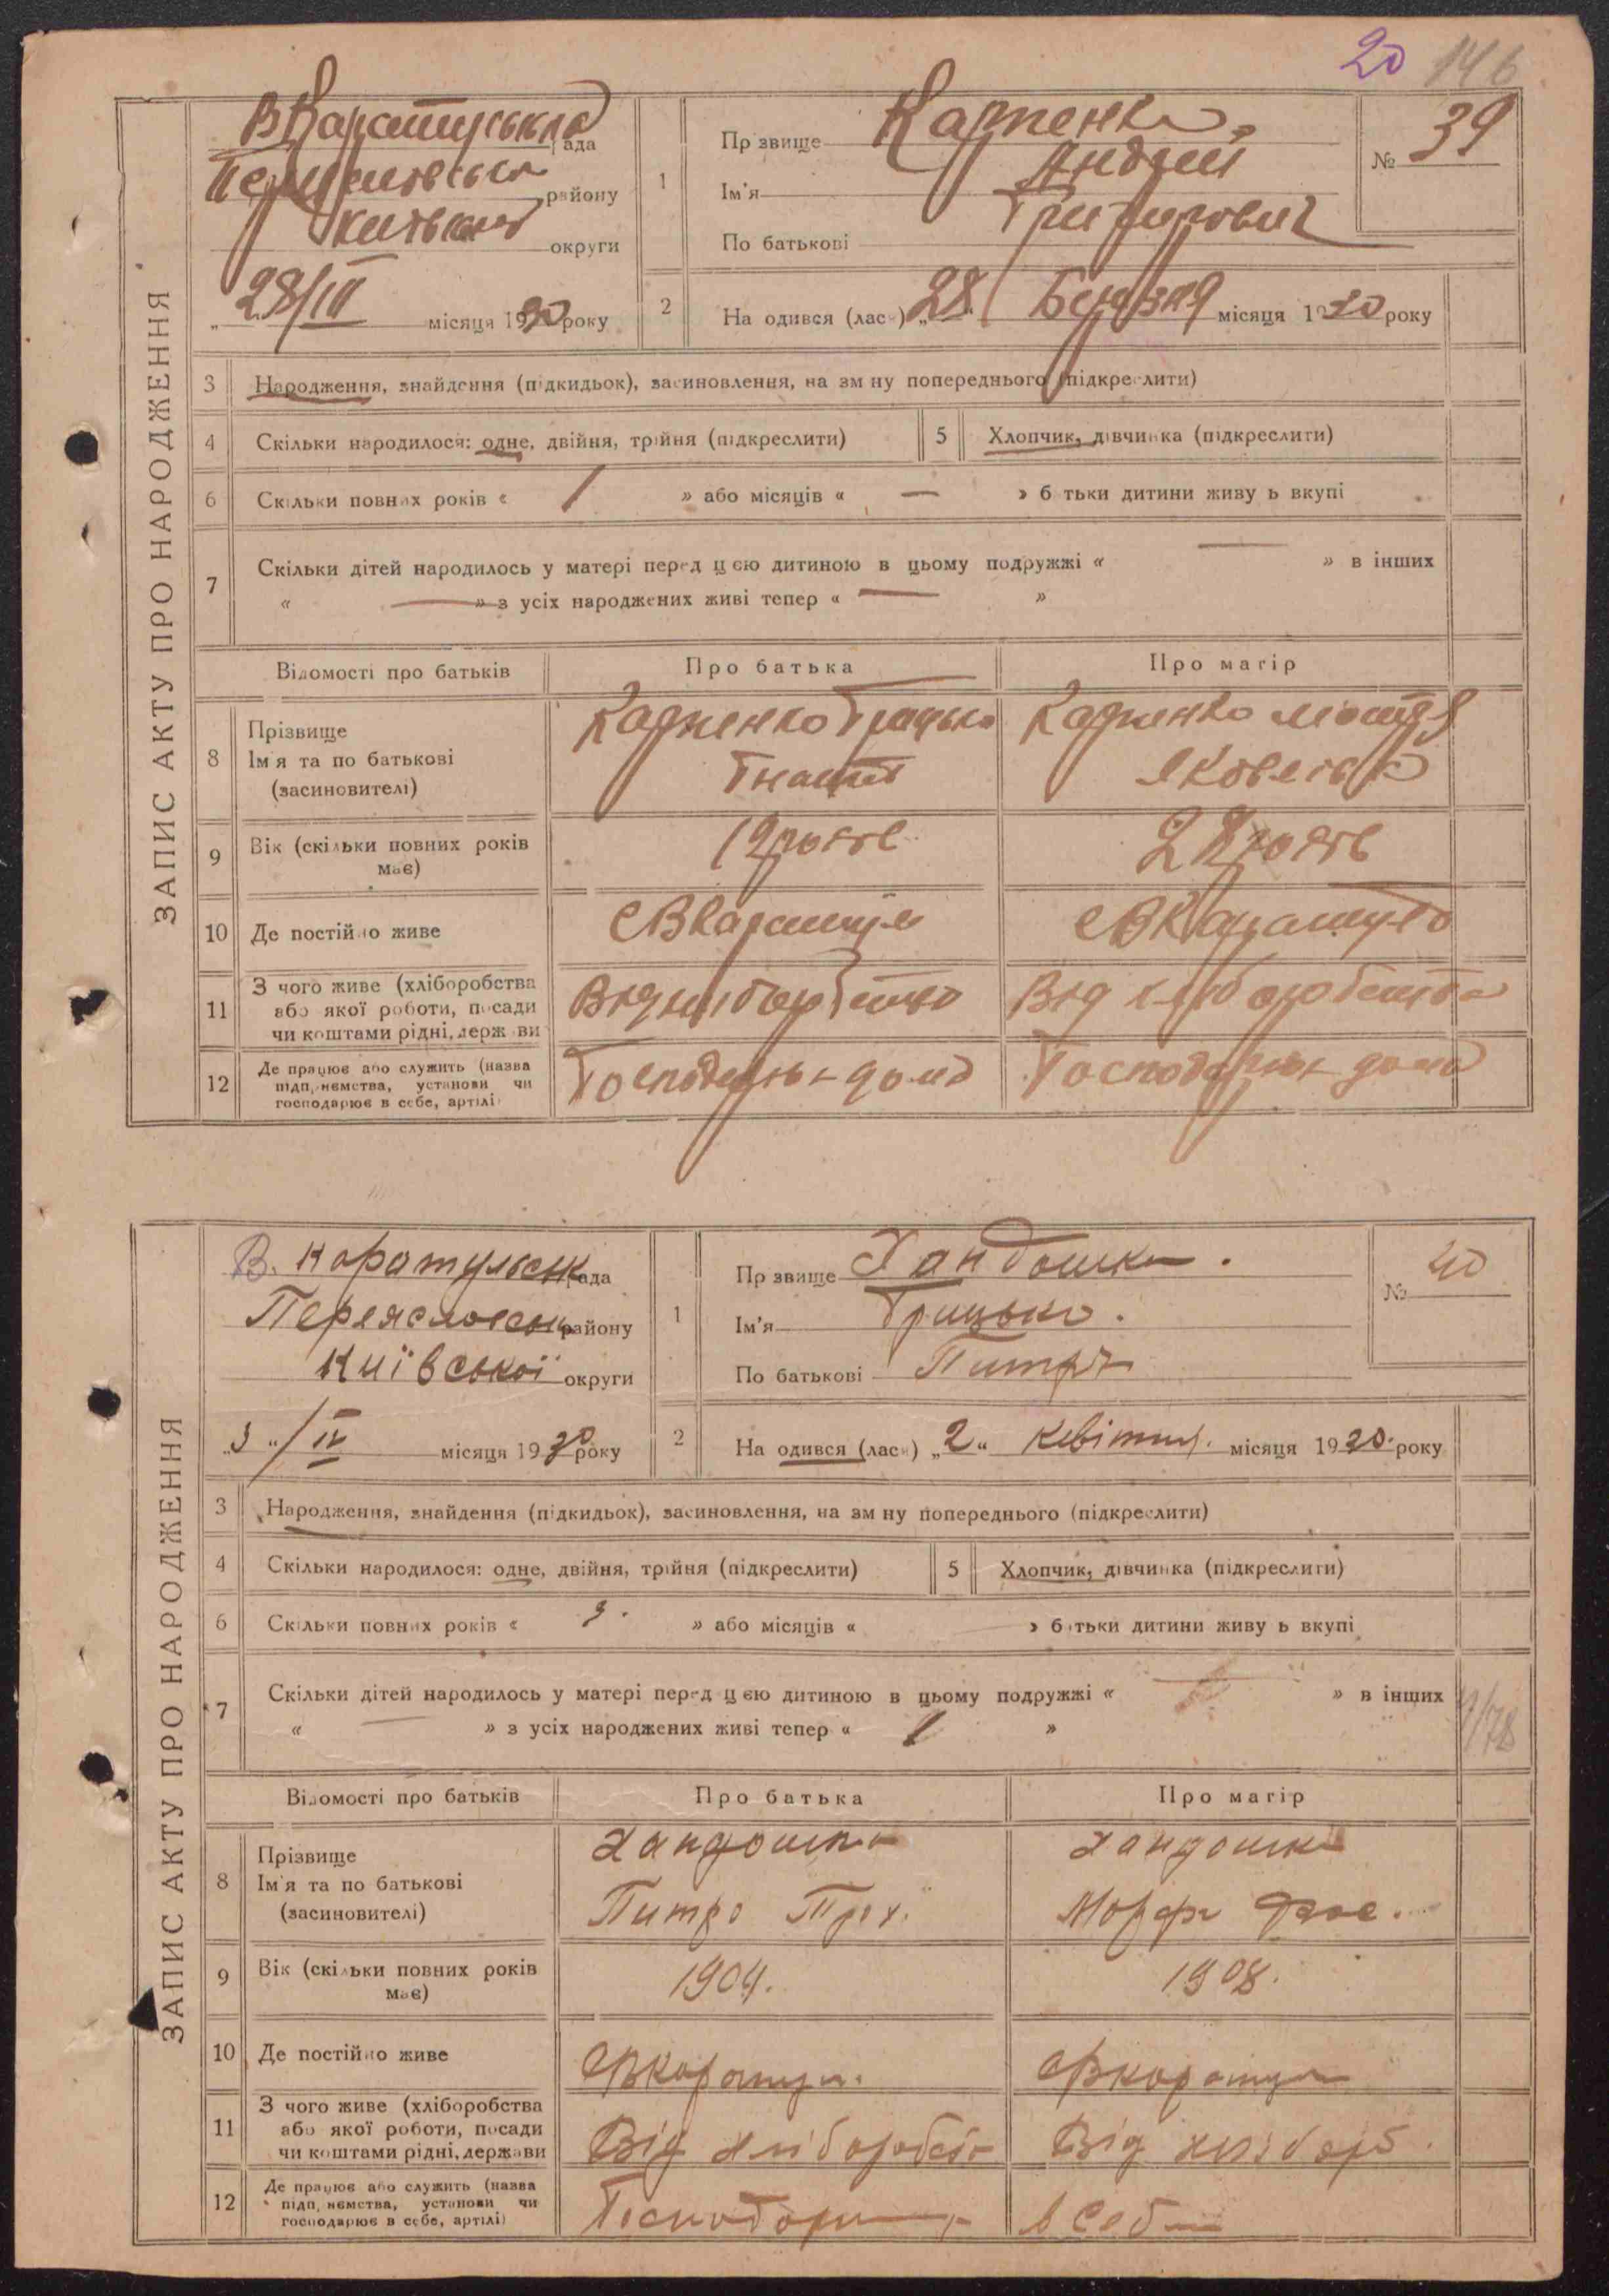 20 146
ЗАПИС АКТУ ПРО НАРОДЖЕННЯ
ВКаратульська рада
району
округи
28/III місяця 1930 року
1
Пр звище Карпенко
Ім'я Андрій
По батькові Григорович
№ 39
2
На одився (лась) „28“ Березня місяця 1930 року
3 Народження, знайдення (підкидьок), засиновлення, на зм ну попереднього (підкреслити)
4 Скільки народилося: одне, двійня, трійня (підкреслити) 5 Хлопчик, дівчинка (підкреслити)
6 Скільки повних років « 1 » або місяців « — » б тьки дитини живу ь вкупі
7 Скільки дітей народилось у матері перед цією дитиною в цьому подружжі « — » в інших
« — » з усіх народжених живі тепер « — »
Відомості про батьків Про батька Про матір
8 Прізвище
Ім'я та по батькові
(засиновителі)
Карпенко Грицько
Гнатів
Карпенко Мотря
Яковлівна
9 Вік (скільки повних років
має)
10 Де постійно живе
с ВКаратуля с ВКаратуль
11 З чого живе (хліборобства
або якої роботи, посади
чи коштами рідні, держ ви
Від хліборобства Від хліборобства
12 Де працює або служить (назва
підп, немства, установи чи
господарює в себе, артілі)
ЗАПИС АКТУ ПРО НАРОДЖЕННЯ
В. Каратульськ рада
Переяславськ району
Київської округи
„3“/IV місяця 1930 року
1
Пр звище Хандошка.
Ім'я Грицько.
По батькові Питрів
№ 40
2
На одився (лась) „2“ квітня. місяця 1930. року
3 Народження, знайдення (підкидьок), засиновлення, на зм ну попереднього (підкреслити)
4 Скільки народилося: одне, двійня, трійня (підкреслити) 5 Хлопчик, дівчинка (підкреслити)
6 Скільки повних років « 3. » або місяців « » б тьки дитини живу ь вкупі
7 Скільки дітей народилось у матері перед цією дитиною в цьому подружжі « » в інших
« — » з усіх народжених живі тепер « 1 »
Відомості про батьків Про батька Про матір
8 Прізвище
Ім'я та по батькові
(засиновителі)
Хандошка
Питро Трох.
Хандошка
Морфа
9 Вік (скільки повних років
має)
1904. 1908.
10 Де постійно живе
с Вкаратул. с Вкаратул
11 З чого живе (хліборобства
або якої роботи, посади
чи коштами рідні, держави
Від хліборобств Від хлібороб.
12 Де працює або служить (назва
підп, немства, установи чи
господарює в себе, артілі)
в себе